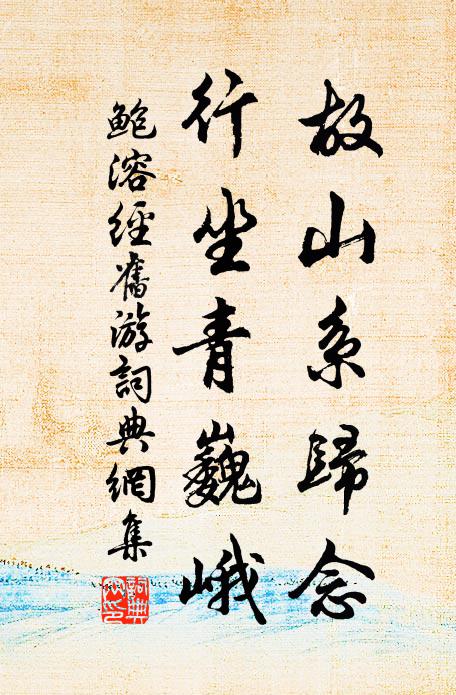 故山系歸念
行坐青巍峨
鲍溶經舊游詞典網集